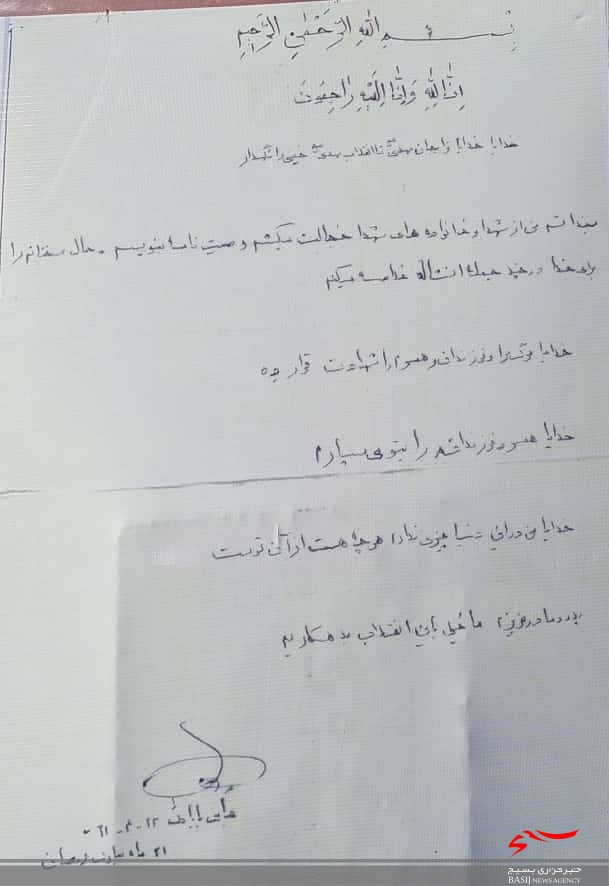 بِسْمِ اللهِ الرَّحْمٰنِ الرَّحِیمِ
اِنّٰا لِلّٰهِ وَاِنّٰا اِلَیْهِ رٰاجِعُونَ
خدایا خدایا تا انقلاب مهدی خمینی را نگهدار
من از شهدا و خانواده های شهدا خجالت میکشم وصیت نامه بنویسم . حال سخنانم را
برای خدا در چند جمله انشاله خلاصه میکنم
خدایا مرگ مرا و فرزندان و همسرم را شهادت قرار بده
خدایا همسر و فرزندانم را بتو می سپارم
خدایا من در این دنیا چیزی ندارم هرچه هست از آن توست
پدر و مادر عزیزم ما خیلی باین انقلاب بدهکاریم
عباس بابائی ۲۲-۴-۶۱
۲۱ ماه مبارک رمضان
خبرگزاری بسیج
BASIJ NEWS AGENCY